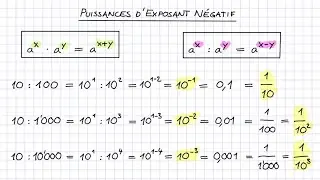 PUISSANCES D'EXPOSANT NÉGATIF
a^x · a^y = a^(x+y)
a^x : a^y = a^(x-y)
10 : 100 = 10^1 : 10^2 = 10^(1-2) = 10^(-1) = 0,1 = 1/10
10 : 1'000 = 10^1 : 10^3 = 10^(1-3) = 10^(-2) = 0,01 = 1/100 = 1/10^2
10 : 10'000 = 10^1 : 10^4 = 10^(1-4) = 10^(-3) = 0,001 = 1/1'000 = 1/10^3